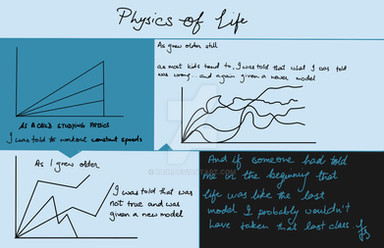 Physics of Life
As a child studying physics
I was told to workout constant speeds
As grew older still
as most kids tend to, I was told that what I was told
was wrong. and again given a newer model
As I grew older
I was told that was
not true and was
given a new model
And if someone had told
me in the beginning that
life was like the last
model I probably wouldn't
have taken that last class